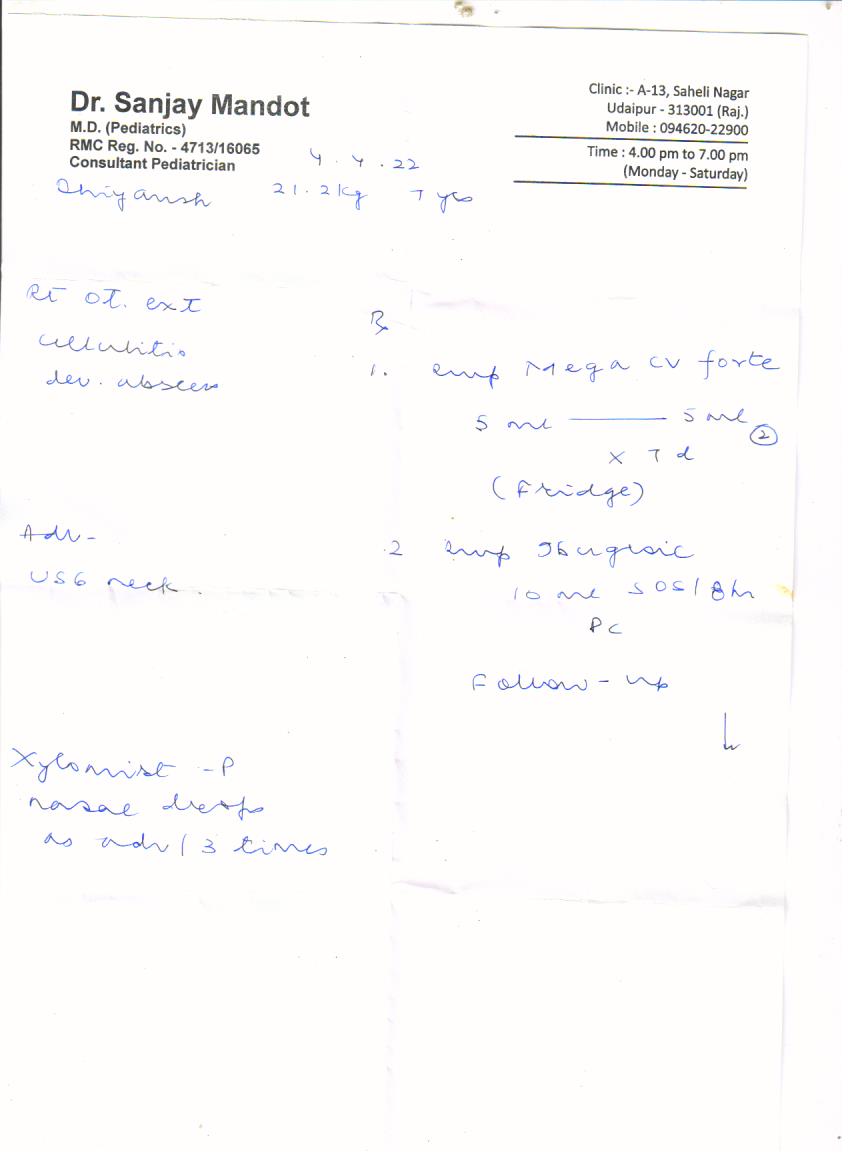 Dr. Sanjay Mandot
M.D. (Pediatrics)
RMC Reg. No. - 4713/16065
Consultant Pediatrician
Clinic :- A-13, Saheli Nagar
Udaipur - 313001 (Raj.)
Mobile : 094620-22900
Time : 4.00 pm to 7.00 pm
(Monday - Saturday)
4.4.22
21.2kg 7 yrs
Rt Ot. ext
cellulitis
dev. abscess
Adv-
USG neck
Xylomist -P
nasal drops
as adv / 3 times
Rx
1. syp Mega CV forte
5 ml —— 5 ml
2
x 7 d
(Fridge)
2 syp Ibugesic
10 ml SOS / 8hr
PC
Follow-up